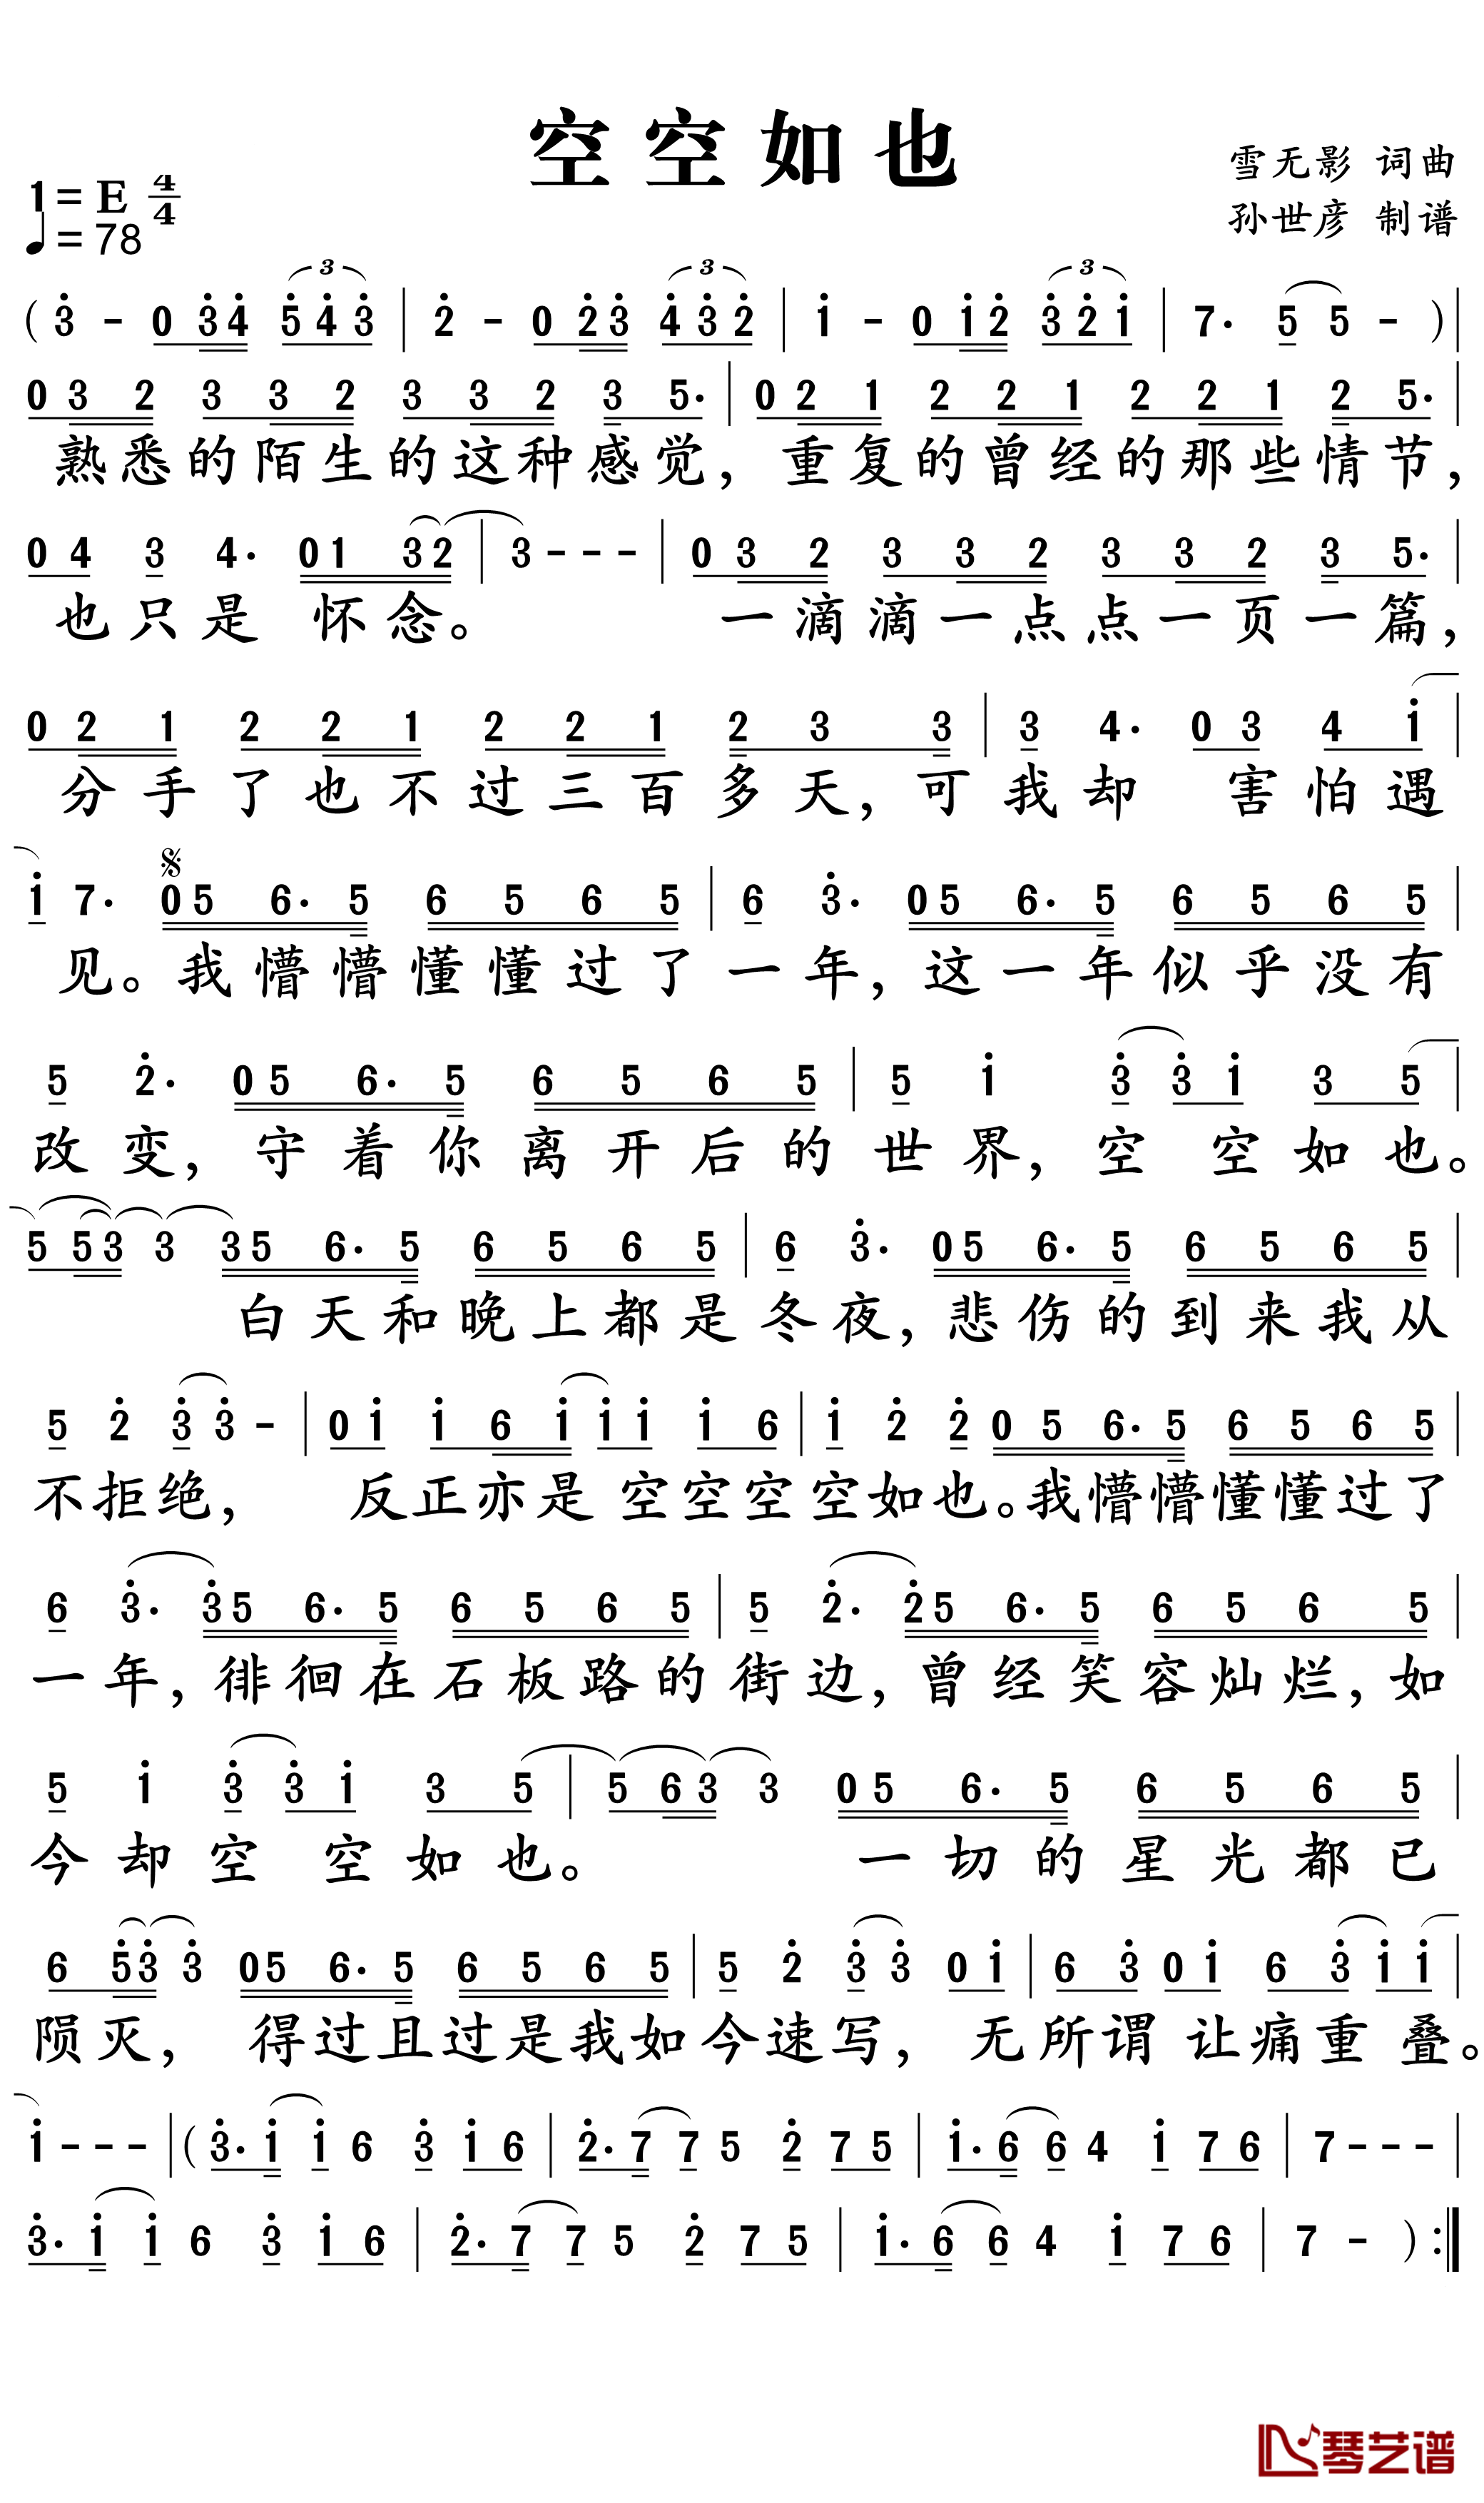 空空如也
雪无影 词曲
1=E 4/4
孙世彦 制谱
♩=78
( 3̇ - 0 3̇4̇ 5̇4̇3̇ | 2̇ - 0 2̇3̇ 4̇3̇2̇ | 1̇ - 0 1̇2̇ 3̇2̇1̇ | 7· 5 5 - ) |
0 3 2 3 3 2 3 3 2 3 5· | 0 2 1 2 2 1 2 2 1 2 5· |
熟悉的陌生的这种感觉，重复的曾经的那些情节，
0 4 3 4· 0 1 3 2 | 3 - - - | 0 3 2 3 3 2 3 3 2 3 5· |
也只是怀念。 一滴滴一点点一页一篇，
0 2 1 2 2 1 2 2 1 2 3 3 | 3 4· 0 3 4 1̇ |
分手了也不过三百多天，可我却 害怕遇
1̇ 7· 0 5 6· 5 6 5 6 5 | 6 3̇· 0 5 6· 5 6 5 6 5 |
见。我懵懵懂懂过了一年，这一年似乎没有
5 2̇· 0 5 6· 5 6 5 6 5 | 5 1̇ 3̇ 3̇ 1̇ 3 5 |
改变，守着你离开后的世界，空空如也。
5 5 3 3 3 5 6· 5 6 5 6 5 | 6 3̇· 0 5 6· 5 6 5 6 5 |
白天和晚上都是冬夜，悲伤的到来我从
5 2̇ 3̇ 3̇ - | 0 1̇ 1̇ 6 1̇ 1̇ 1̇ 1̇ 6 | 1̇ 2̇ 2̇ 0 5 6· 5 6 5 6 5 |
不拒绝， 反正亦是空空空空如也。我懵懵懂懂过了
6 3̇· 3̇ 5 6· 5 6 5 6 5 | 5 2̇· 2̇ 5 6· 5 6 5 6 5 |
一年，徘徊在石板路的街边，曾经笑容灿烂，如
5 1̇ 3̇ 3̇ 1̇ 3 5 | 5 6 3 3 0 5 6· 5 6 5 6 5 |
今却空空如也。 一切的星光都已
6 5̇ 3̇ 3̇ 0 5 6· 5 6 5 6 5 | 5 2̇ 3̇ 3̇ 0 1̇ | 6 3̇ 0 1̇ 6 3̇ 1̇ 1̇ |
陨灭， 得过且过是我如今速写， 无所谓让痛重叠。
1̇ - - - | ( 3̇· 1̇ 1̇ 6 3̇ 1̇ 6 | 2̇· 7 7 5 2̇ 7 5 | 1̇· 6 6 4 1̇ 7 6 | 7 - - - |
3̇· 1̇ 1̇ 6 3̇ 1̇ 6 | 2̇· 7 7 5 2̇ 7 5 | 1̇· 6 6 4 1̇ 7 6 | 7 - ) :|
琴艺谱